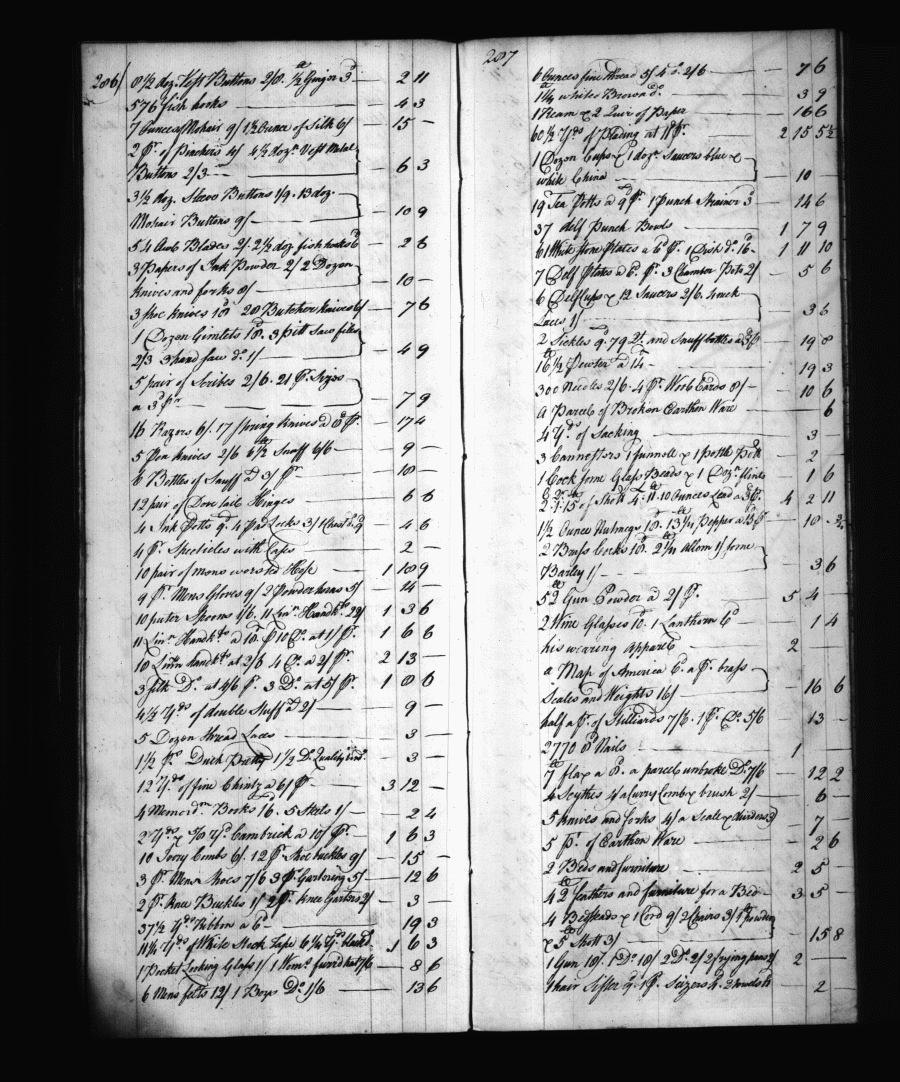 286/ 8 1/2 doz. Vest Buttons 2/8. 1/2 lb Ginger 3d — — 2 11
576 fish hooks — — 4 3
7 Ounces Mohair 9/ 1 1/2 Ounce of Silk 6/ — 15 —
2 pr. of Pinchers 4/ 4 1/2 dozn. Vest Metal
Buttons 2/3 — — 6 3
3 1/2 doz. Sleeve Buttons 1/9. 13 doz.
Mohair Buttons 9/ — — 10 9
54 Blades 2/. 2 1/2 doz fish hooks 6d — 2 6
3 Papers of Ink Powder 2/ 2 Dozen
Knives and forks 8/ — — 10 —
3 Shoe Knives 18d 20 Butcher Knives 6/ — 7 6
1 Dozen Gimlets 18d. 3 pitt Saw files
2/3 3 hand saw do. 1/ — — 4 9
5 pair of Scribes 2/6. 21 pr.
a 3d pr — — 7 9
16 Razors 6/. 17 Spring Knives a 8d pr. — 17 4
5 Pen Knives 2/6 6 1/2 lb Snuff 6/6 — — 9 —
6 Bottles of Snuff a 3/ pr — 18 —
12 pair of Dove tail Hinges — 6 6
4 Ink Potts 9d. 4 Pad Locks 3/ 1 Do. 9 — 4 6
4 pr. Spectacles with Cases — 2 —
10 pair of mens worsted Hose — 1 18 9
9 pr. Mens Gloves 9/ 2 Powder horns 5/ — 14 —
10 puter Spoons 1/6. 11 Linn. Handkfs 22/ 1 3 6
11 Linn. Handkfs a 18d. 10 Do. at 1/ pr. — 1 6 6
10 Linn handkfs at 2/6 4 Do a 2/ pr. 2 13 —
3 silk Do. at 4/6 pr. 3 Do. at 5/ pr. 1 8 6
4 1/2 Yds of double Stuff a 2/ — — 9 —
5 Dozen thread Laces — — 3 —
1 1/2 ps. Duck Pretty 1 1/2 Do Quality — 3 —
12 Yds of fine Chintz a 6/ pr — 3 12 —
4 Memordm. Books 16. 5 1/ — 2 4
2 Yds & 5/8 Yd. Cambrick a 10/ pr. — 1 6 3
10 Ivory Combs 6/. 12 pr Shoe buckles 9/ — 15 —
3 pr. Mens Shoes 7/6 3 ps. Gartering 5/ — 12 6
2 pr. Knee Buckles 1/ 2 pr. Knee Garters 2/ — 3 —
37 1/2 Yds Ribbon a 6d — — 19 3
11 3/4 Yds. of White Tape 6 1/4 Yds — 1 6 3
1 Pocket Looking Glass 1/ 1 Womn. furrd hat 7/6 — 8 6
6 Mens felts 12/ 1 Boys Do. 1/6 — — 13 6
287
6 Ounces fine thread 3/ 4 do. 2/6 — — 7 6
1 1/4 lb white & Brown do. — 3 9
1 Ream & 2 Quir of Paper — 16 6
60 1/2 Yds of Plading at 11d pr. — 2 15 5 1/2
1 Dozen Cups & 1 dozn. Saucers blue &
white China — — 10 —
19 Tea Potts a 9d pr. 1 Punch Strainer 3d — 14 6
37 delf Punch Bowls — 1 7 9
61 White Stone Plates a 6d pr. 1 Dish do. 16 — 1 11 10
7 Delf Plates a 6d. pr. 3 Chamber Pots 2/ — 5 6
6 Delf Cups & 12 Saucers 2/6. 4 neck
Laces 1/ — — 3 6
2 Sickles 9d. 79 and Snuff bottles — 19 8
16 1/2 lb Pewter a 14 — — 19 3
300 Needles 2/6. 4 pr. Wool Cards 8/ — 10 6
A Parcel of Broken Earthen Ware — 6
4 Yds of Sacking — — 3 —
3 Cannosters 1 funnell & 1 pottle Pott — 2
1 Cock some Glass Beads & 1 Dozn. flints — 1 6
2. 1. 15 of Shott 4. 11. 10 Ounces Lead a 3d — 4 2 11
1/2 Ounce Nutmegs 18d. 13 3/4 lb Pepper a 18d pr — 18 —
2 Brass Cocks 18d. 2 1/4 lb Allom 1/ some
Barley 1/ — — 3 6
52 lb Gun Powder a 2/ pr. — 5 4 —
2 Wine Glasses 10d. 1 Lanthorn 6d — 1 4
his wearing apparel — 2 —
a Map of America 6d. a pr. brass
Scales and Weights 16/ — 16 6
half a pr. of Stilliards 7/6. 1 pr. Do. 5/6 — 13 —
2770 8d Nails — 1 —
7 lb flax a 8d. a parcel unbroke Do. 7/6 — 12 2
4 Scythes 4/ a Curry Comb & brush 2/ — 6 —
5 knives and forks 4/ a Scale & dividers 3/ — 7 —
5 ps. of Earthen Ware — 2 6
2 Beds and furniture — 2 5 —
42 lb feathers and furniture for a Bed 3 5 —
4 Bedsteads & 1 Cord 9/ 2 Chairs 3/ powder
& 5 lb Shott 3/ — 15 8
1 Gun 19/ 1 Do. 18/ 2 Do. 2/ 2 frying pans 2/ 2 —
1 hair Sifter 9d. 1 pr. Seizers 4d. 2 towels — 2 —